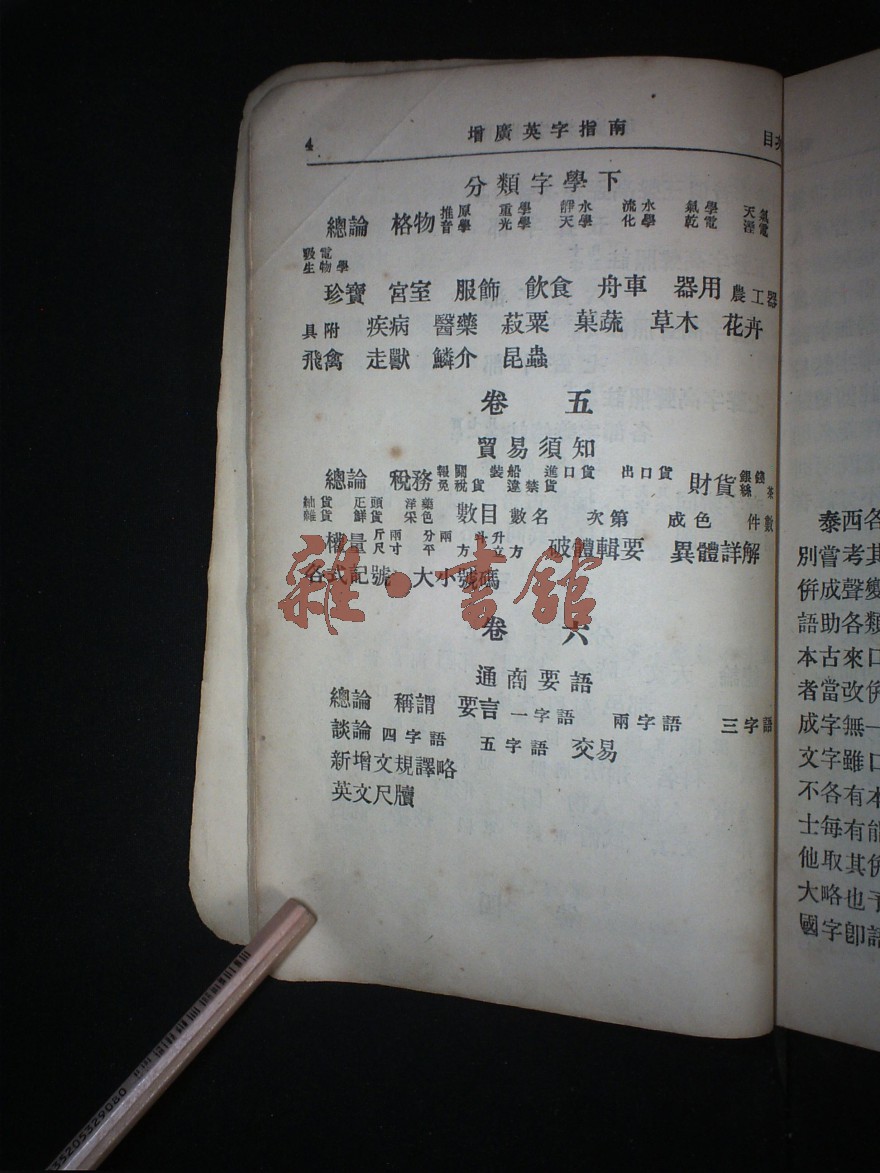 4
增廣英字指南
目次
分類字學下
總論 格物 推原 重學 靜水 流水 氣學 天氣
音學 光學 天學 化學 乾電 溼電
吸電
生物學
珍寶 宮室 服飾 飲食 舟車 器用 農工器
具附 疾病 醫藥 菽粟 菓蔬 草木 花卉
飛禽 走獸 鱗介 昆蟲
卷五
貿易須知
總論 稅務 報關 裝船 進口貨 出口貨 財貨 銀錢
免稅貨 違禁貨 絲茶
紬貨 疋頭 洋藥
雜貨 鮮貨 采色 數目 數名 次第 成色 件數
權量 斤兩 分兩 斗升 破體輯要 異體詳解
尺寸 平方 立方
各式記號 大小號碼
雜·書館
卷六
通商要語
總論 稱謂 要言 一字語 兩字語 三字語
談論 四字語 五字語 交易
新增文規譯略
英文尺牘
泰西各
別嘗考其
併成聲變
語助各類
本古來口
者當改併
成字無一
文字雖口
不各有本
士每有能
他取其併
大略也予
國字卽語
35205329080